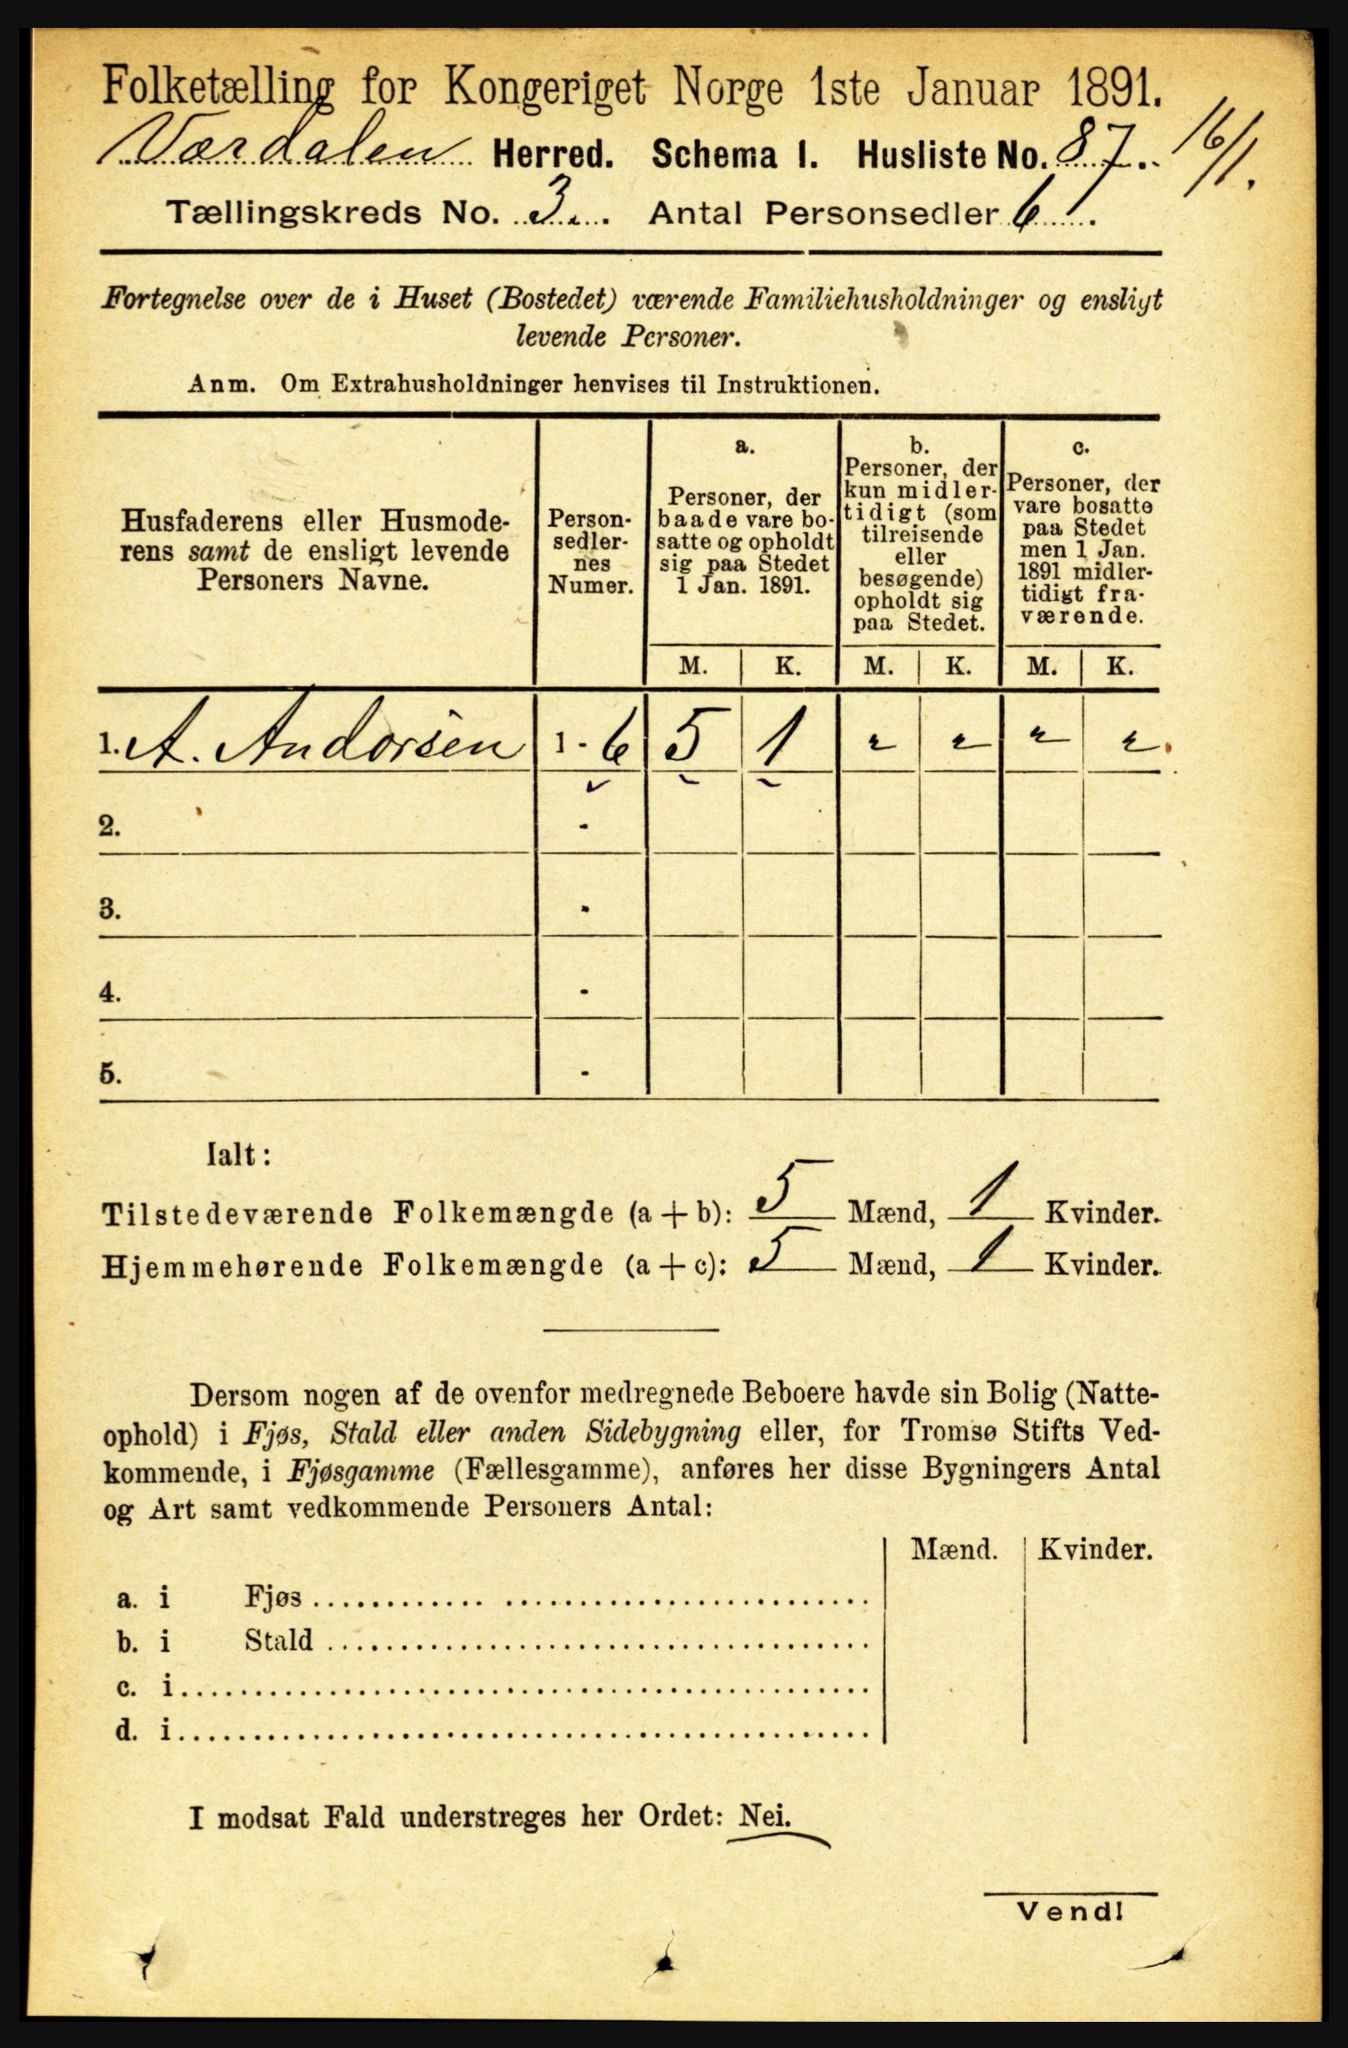 Folketælling for Kongeriget Norge 1ste Januar 1891.
Værdalen Herred. Schema I. Husliste No. 87. 16/1.
Tællingskreds No. 3. Antal Personsedler 6.
Fortegnelse over de i Huset (Bostedet) værende Familiehusholdninger og ensligt
levende Personer.
Anm. Om Extrahusholdninger henvises til Instruktionen.
Husfaderens eller Husmode-
rens samt de ensligt levende
Personers Navne.
Person-
sedler-
nes
Numer.
a.
Personer, der
baade vare bo-
satte og opholdt
sig paa Stedet
1 Jan. 1891.
b.
Personer, der
kun midler-
tidigt (som
tilreisende
eller
besøgende)
opholdt sig
paa Stedet.
c.
Personer, der
vare bosatte
paa Stedet
men 1 Jan.
1891 midler-
tidigt fra-
værende.
M. K. M. K. M. K.
1. A. Andorsen 1 - 6 5 1 " " " "
2. -
3. -
4. -
5. -
Ialt:
Tilstedeværende Folkemængde (a+b): 5 Mænd, 1 Kvinder.
Hjemmehørende Folkemængde (a+c): 5 Mænd, 1 Kvinder.
Dersom nogen af de ovenfor medregnede Beboere havde sin Bolig (Natte-
ophold) i Fjøs, Stald eller anden Sidebygning eller, for Tromsø Stifts Ved-
kommende, i Fjøsgamme (Fællesgamme), anføres her disse Bygningers Antal
og Art samt vedkommende Personers Antal:
Mænd. Kvinder.
a. i Fjøs
b. i Stald
c. i
d. i
I modsat Fald understreges her Ordet: Nei.
Vend!